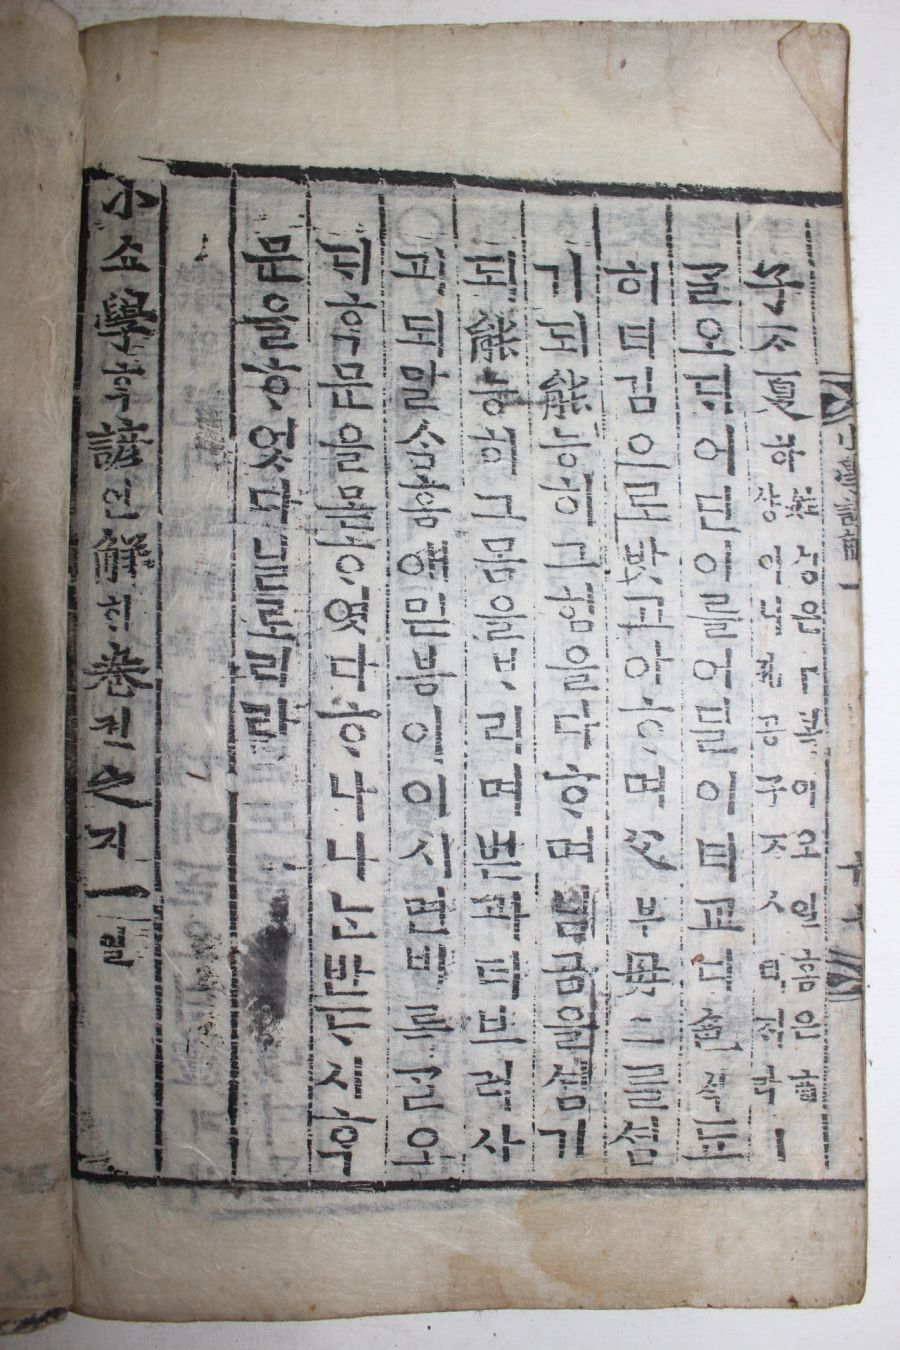 子ᄌᆞ夏하 姓셩은 卜복이오 일홈은 商샹이니 孔공子ᄌᆞㅅ 뎨ᄌᆞㅣ라 ㅣ
ᄀᆞᆯ오ᄃᆡ어딘이를어딜이녀교ᄃᆡ色ᄉᆡᆨ됴
히녀김이로밧고아ᄒᆞ며父부母모를셤
기되能능히그힘을다ᄒᆞ며님금을셤기
되能능히그몸을ᄇᆞ리며벋과더브러사
괴되말ᄉᆞᆷ홈애믿븜이이시면비록ᄀᆞᆯ오
ᄃᆡᄒᆞᆨ문을몯ᄒᆞ엿다ᄒᆞ나나ᄂᆞᆫ반ᄃᆞ시ᄒᆞᆨ
문을ᄒᆞ엿다닐로리라
小쇼學ᄒᆞᆨ諺언解ᄒᆡ卷권之지一일